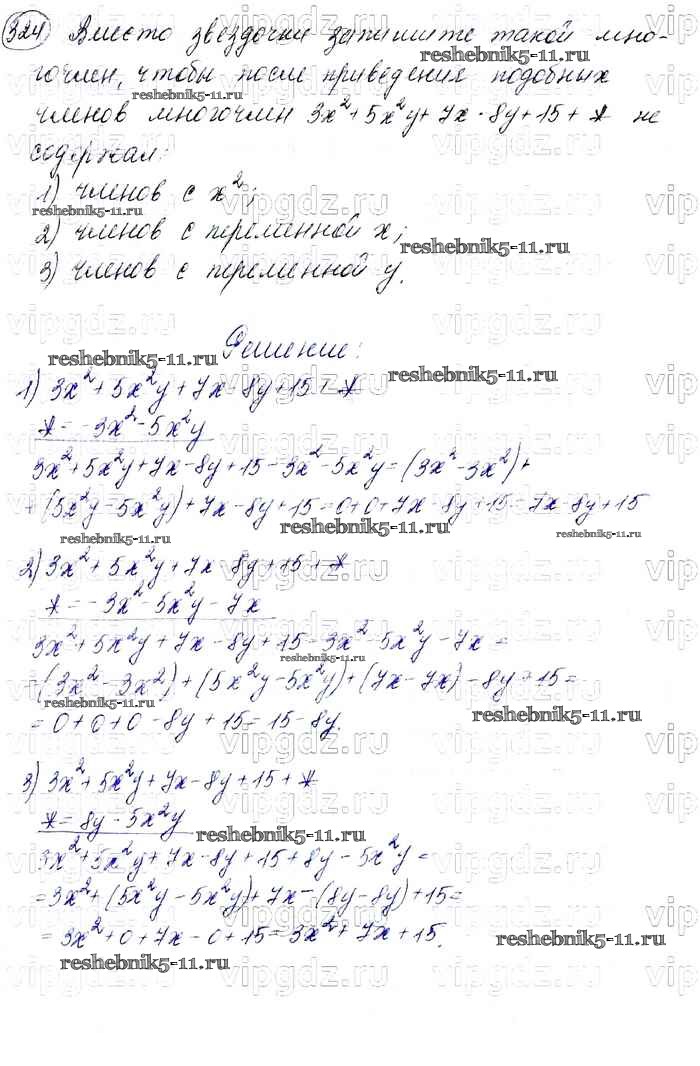 324 Вместо звездочки запишите такой мно-
гочлен, чтобы после приведение подобных
членов многочлен 3x² + 5x²y + 7x - 8y + 15 + * не
содержал:
1) членов с x²;
2) членов с переменной x;
3) членов с переменной y.
Решение:
1) 3x² + 5x²y + 7x - 8y + 15 + *
* = -3x² - 5x²y
3x² + 5x²y + 7x - 8y + 15 - 3x² - 5x²y = (3x² - 3x²) +
+ (5x²y - 5x²y) + 7x - 8y + 15 = 0 + 0 + 7x - 8y + 15 = 7x - 8y + 15
2) 3x² + 5x²y + 7x - 8y + 15 + *
* = -3x² - 5x²y - 7x
3x² + 5x²y + 7x - 8y + 15 - 3x² - 5x²y - 7x =
= (3x² - 3x²) + (5x²y - 5x²y) + (7x - 7x) - 8y + 15 =
= 0 + 0 + 0 - 8y + 15 = 15 - 8y.
3) 3x² + 5x²y + 7x - 8y + 15 + *
* = 8y - 5x²y
3x² + 5x²y + 7x - 8y + 15 + 8y - 5x²y =
= 3x² + (5x²y - 5x²y) + 7x - (8y - 8y) + 15 =
= 3x² + 0 + 7x - 0 + 15 = 3x² + 7x + 15.
reshebnik5-11.ru
vipgdz.ru